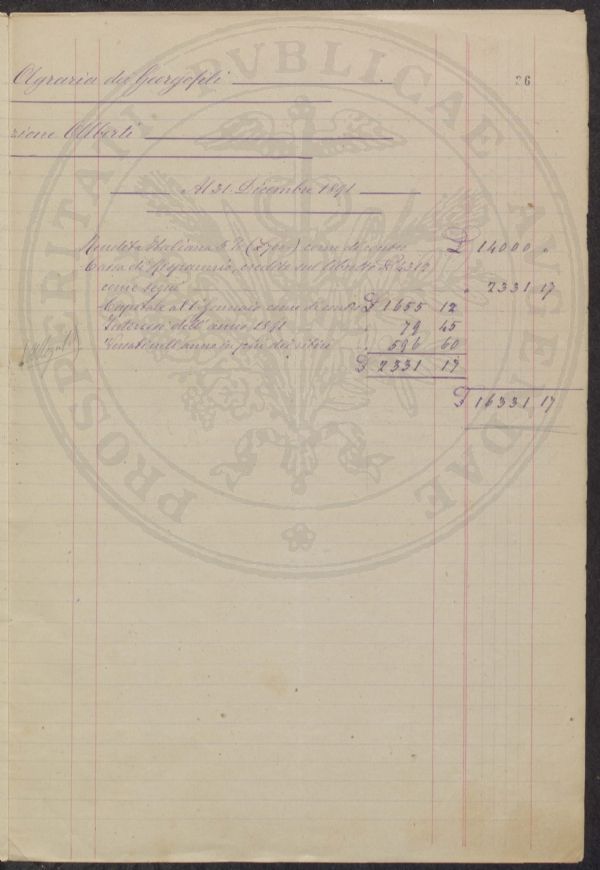 Agraria dei Georgofili
26
zione Alberti
Al 31 Dicembre 1891
Rendita Italiana 5 % (£ 700) come di contro £ 14000 "
Cassa di Risparmio, credito sul libretto
come segue " 2331 17
Capitale al 1º Gennaio come di contro £ 1655 12
Interessi dell'anno 1891 " 79 45
Versati nell'anno in più dei ritiri " 596 60
£ 2331 17
£ 16331 17
PROSPERITATI PVBLICAE AVGENDAE